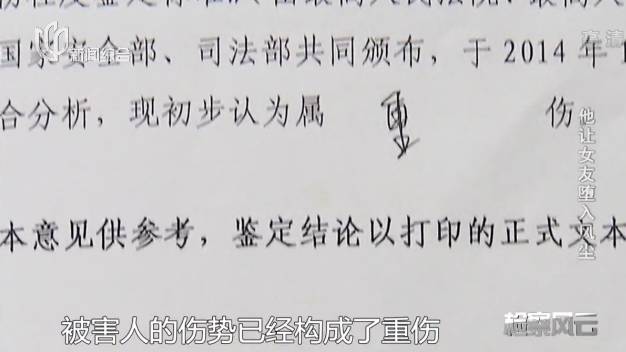 最高人民法院、最高人
新闻综合
高清
国家安全部、司法部共同颁布，于 2014 年 1
合分析，现初步认为属 重 伤
他让女友堕入风尘
本意见供参考，鉴定结论以打印的正式文本
被害人的伤势已经构成了重伤
检察风云